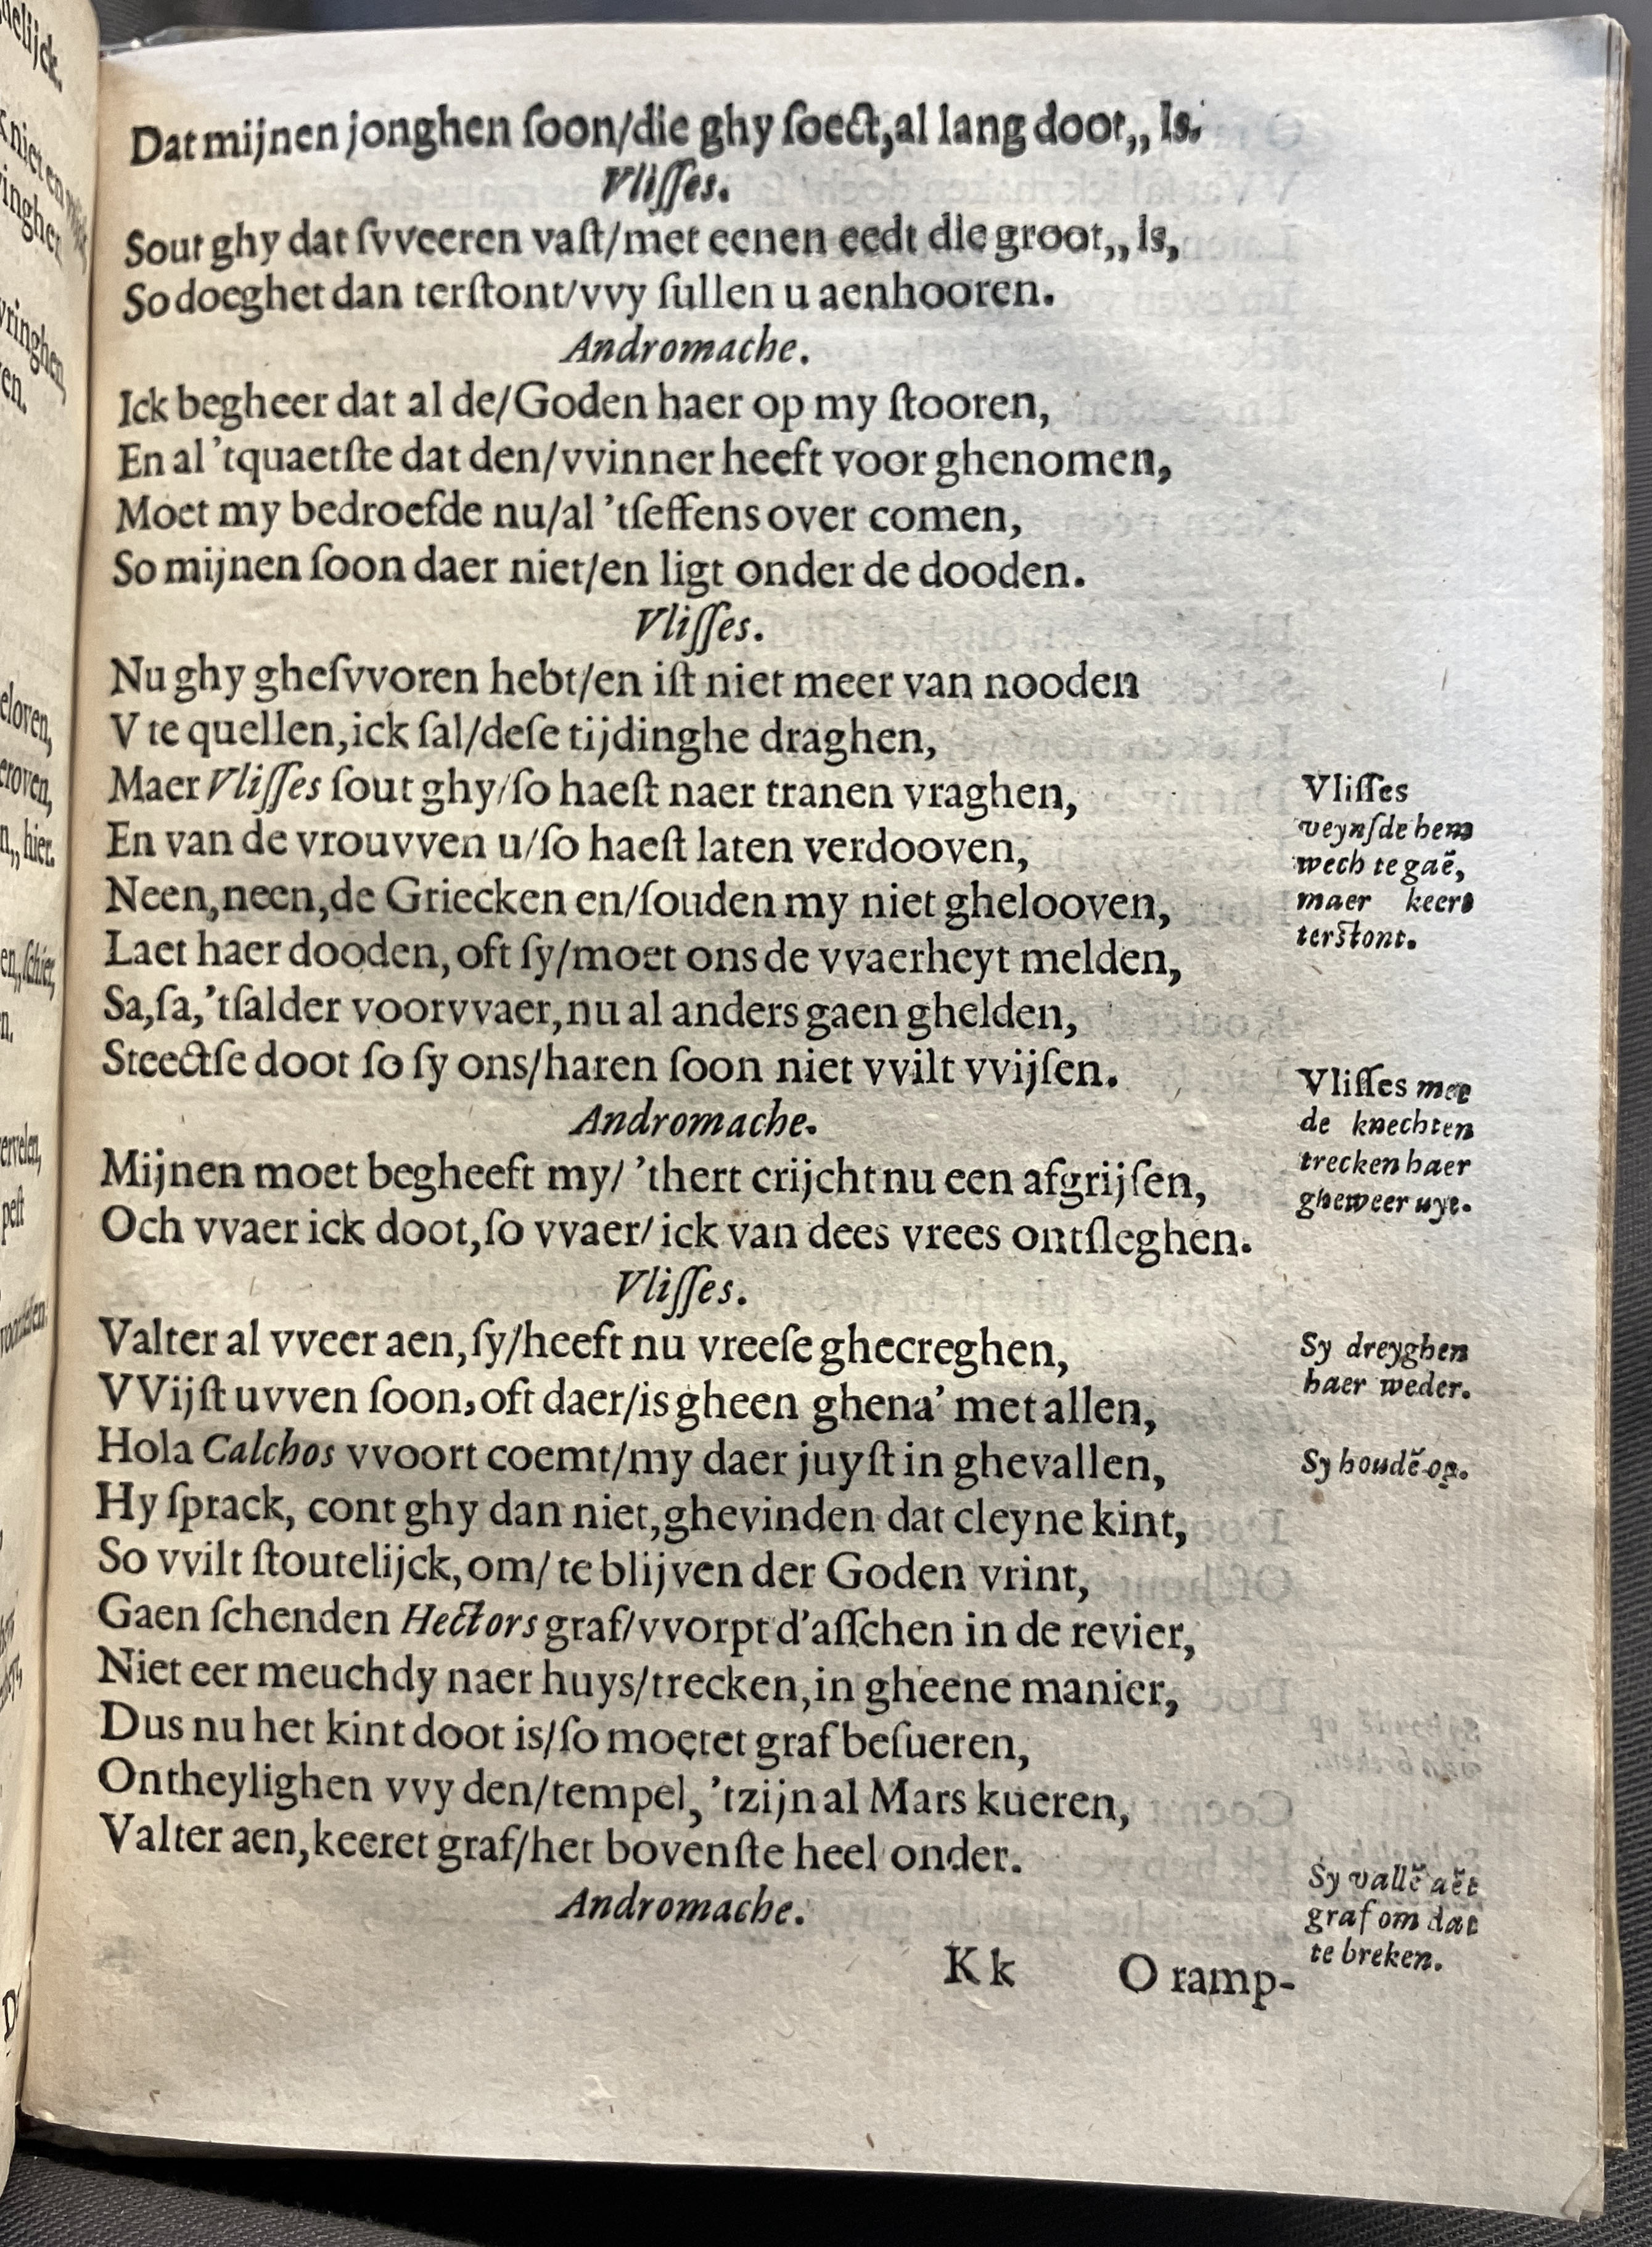 Dat mijnen jonghen ſoon/die ghy ſoect,al lang doot,, is.
Vliſſes.
Sout ghy dat ſvveeren vaſt/met eenen eedt die groot,, is,
So doeghet dan terſtont/vvy ſullen u aenhooren.
Andromache.
Ick begheer dat al de/Goden haer op my ſtooren,
En al 'tquaetſte dat den/vvinner heeft voor ghenomen,
Moet my bedroefde nu/al 'tſeffens over comen,
So mijnen ſoon daer niet/en ligt onder de dooden.
Vliſſes.
Nu ghy gheſvvoren hebt/en iſt niet meer van nooden
V te quellen,ick ſal/deſe tijdinghe draghen,
Maer Vliſſes ſout ghy/ſo haeſt naer tranen vraghen,
En van de vrouvven u/ſo haeſt laten verdooven,
Neen,neen,de Griecken en/ſouden my niet ghelooven,
Laet haer dooden, oft ſy/moet ons de vvaerheyt melden,
Sa,ſa,'tſalder voorvvaer,nu al anders gaen ghelden,
Steectſe doot ſo ſy ons/haren ſoon niet vvilt vvijſen.
Andromache.
Mijnen moet begheeft my/ 'thert crijcht nu een afgrijſen,
Och vvaer ick doot,ſo vvaer/ick van dees vrees ontſleghen.
Vliſſes.
Valter al vveer aen,ſy/heeft nu vreeſe ghecreghen,
VVijſt uvven ſoon,oft daer/is gheen ghena' met allen,
Hola Calchos vvoort coemt/my daer juyſt in ghevallen,
Hy ſprack, cont ghy dan niet,ghevinden dat cleyne kint,
So vvilt ſtoutelijck,om/ te blijven der Goden vrint,
Gaen ſchenden Hectors graf/vvorpt d'aſſchen in de revier,
Niet eer meuchdy naer huys/trecken,in gheene manier,
Dus nu het kint doot is/ſo moetet graf beſueren,
Ontheylighen vvy den/tempel,'tzijn al Mars kueren,
Valter aen,keeret graf/het bovenſte heel onder.
Andromache.
Kk O ramp-
Vliſſes
veynſde hem
wech te gaē,
maer keert
terſtont.
Vliſſes met
de knechten
trecken haer
gheweer uyt.
Sy dreyghen
haer weder.
Sy houdē op.
Sy vallē aēt
graf om dat
te breken.